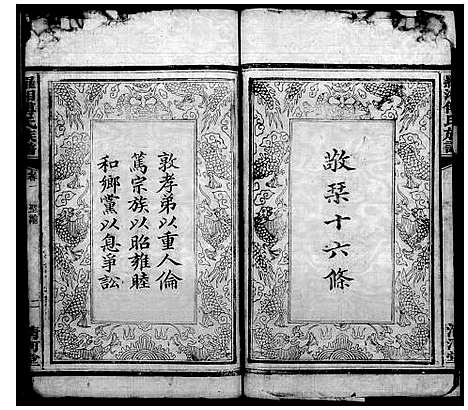 敬栞十六條
敦孝弟以重人倫
篤宗族以昭雍睦
和鄉黨以息爭訟
清河堂